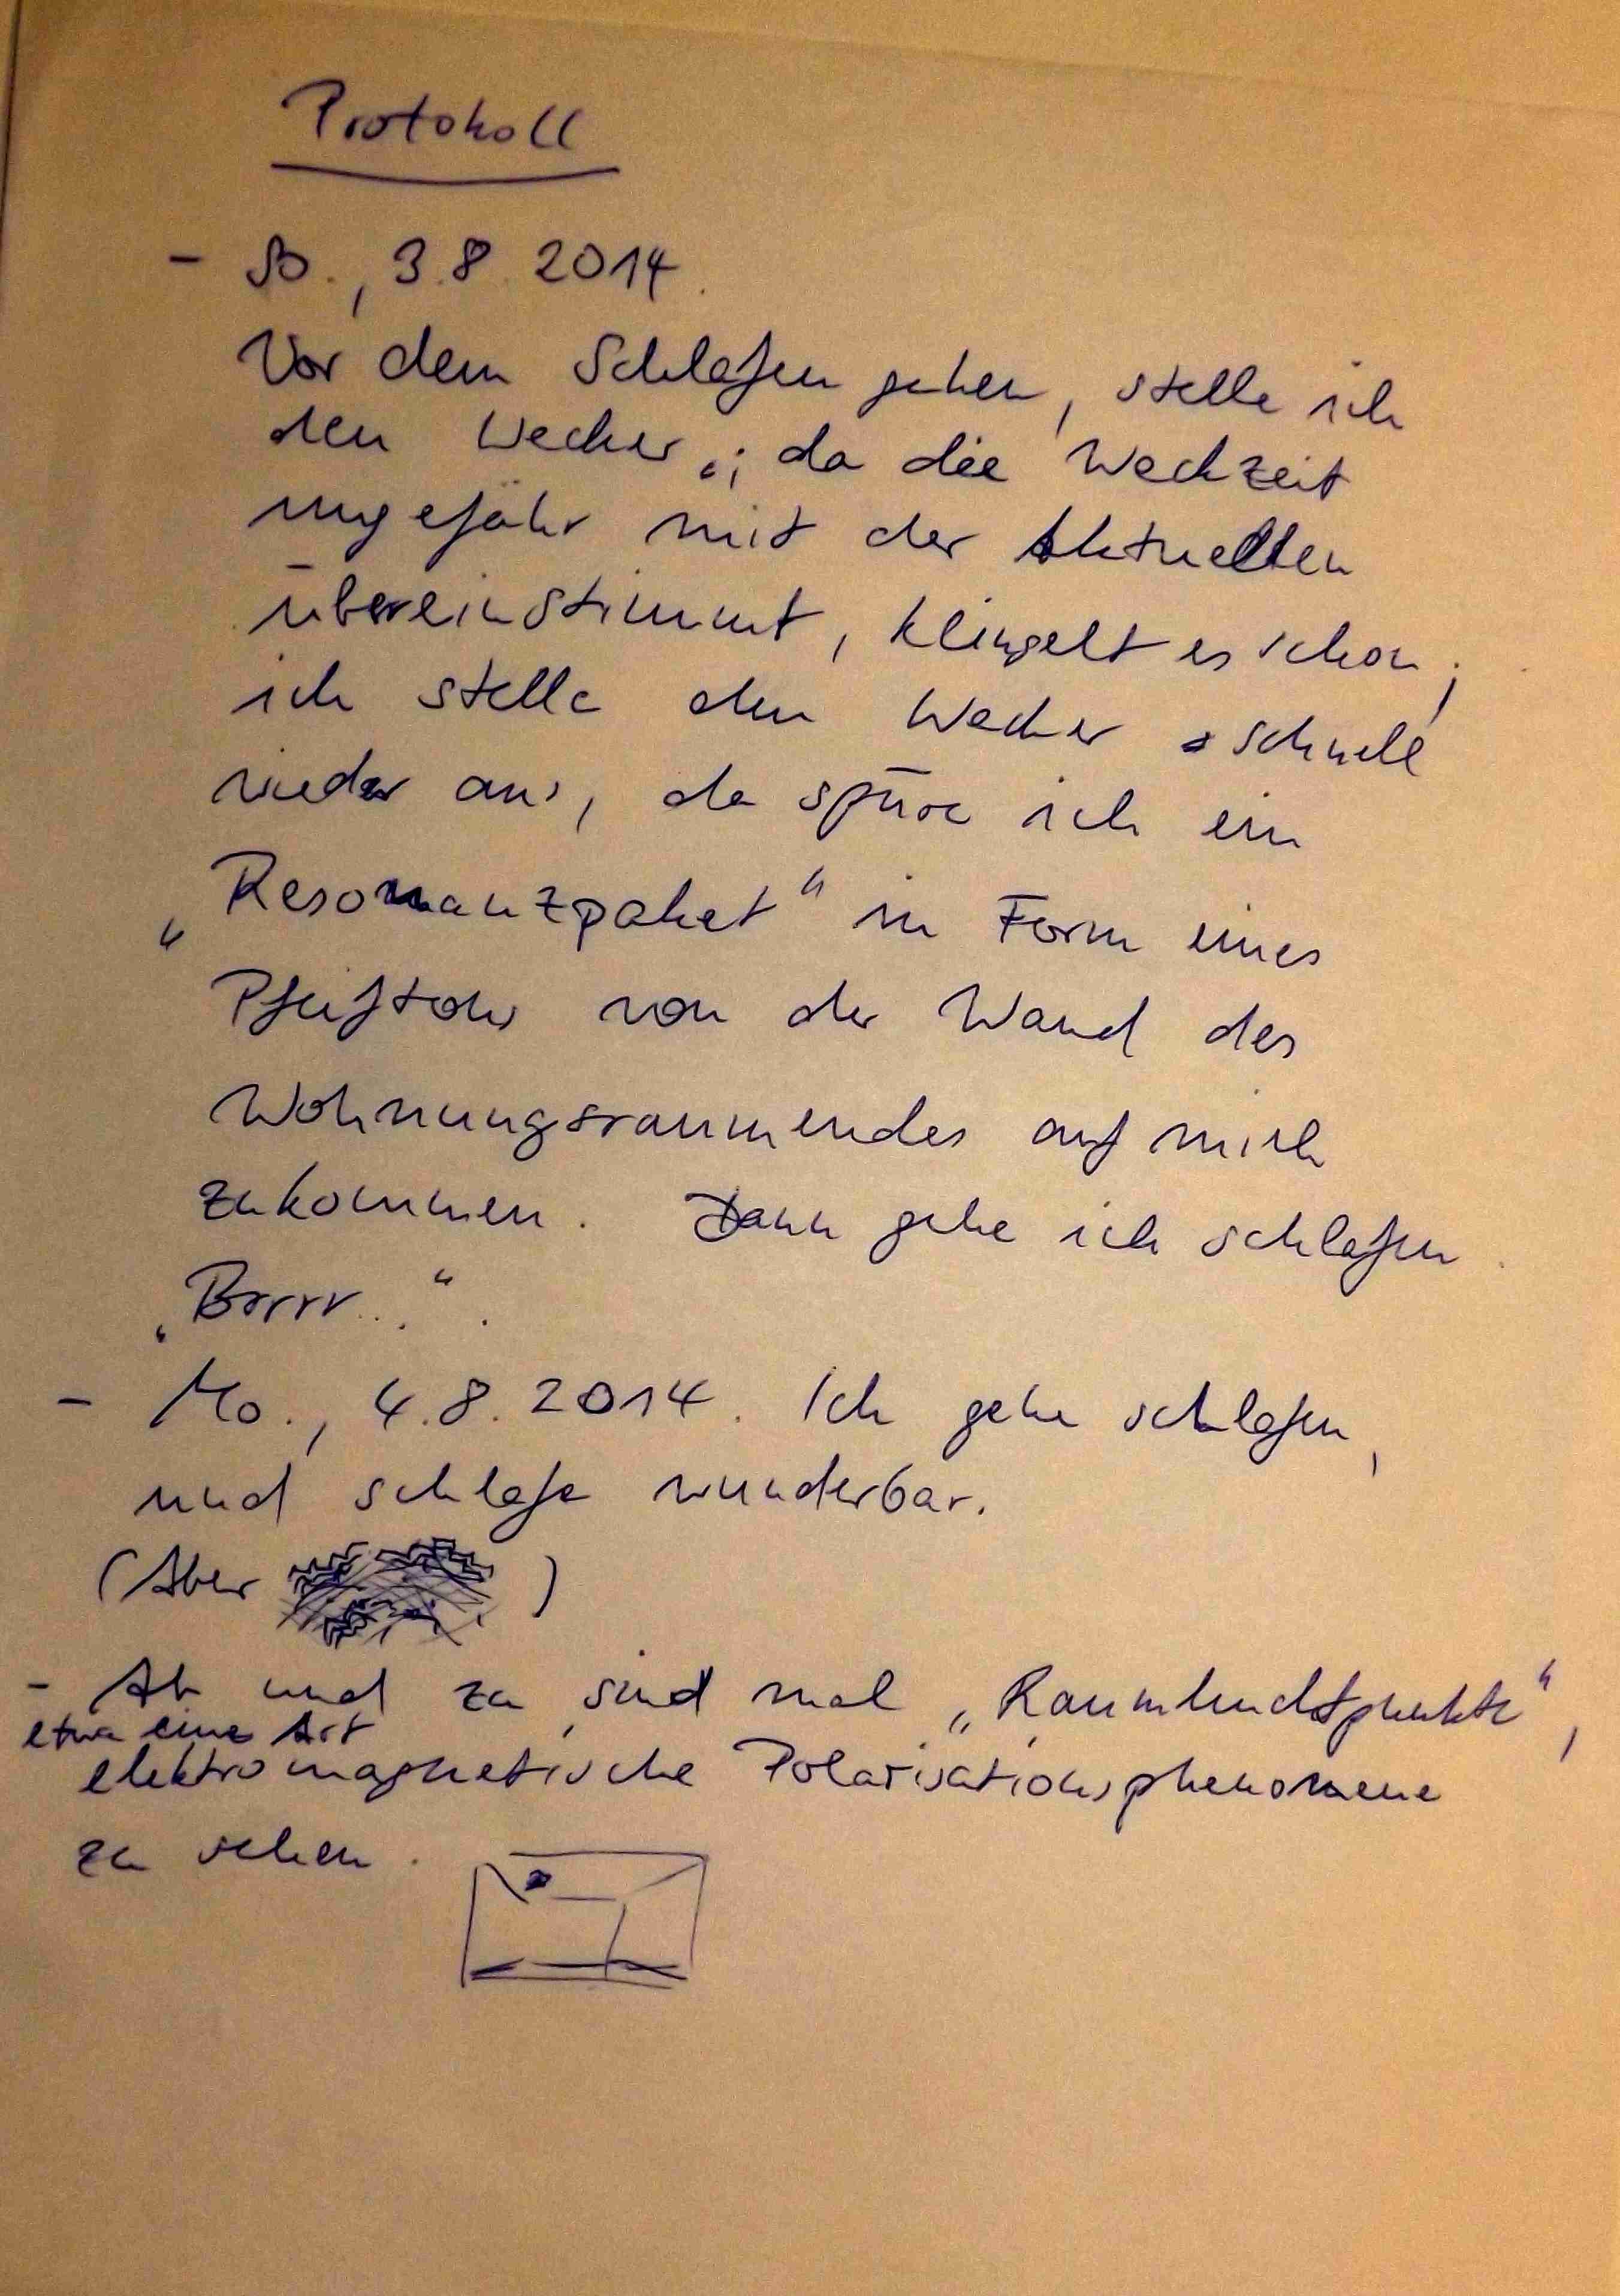 Protokoll
- So., 3.8.2014.
Vor dem Schlafen gehen, stelle ich
den Wecker; da die Weckzeit
ungefähr mit der Aktuellen
übereinstimmt, klingelt es schon;
ich stelle den Wecker schnell
wieder aus, da spüre ich ein
„Resonanzpaket“ in Form eines
Pfeiftons von der Wand des
Wohnungsraumendes auf mich
zukommen. Dann gehe ich schlafen.
„Brrrr...“.
- Mo., 4.8.2014. Ich gehe schlafen,
und schlafe wunderbar.
(Aber )
- Ab und zu sind mal „Raumleuchtpunkte“,
etwa eine Art
elektromagnetische Polarisationsphenomene
zu sehen.